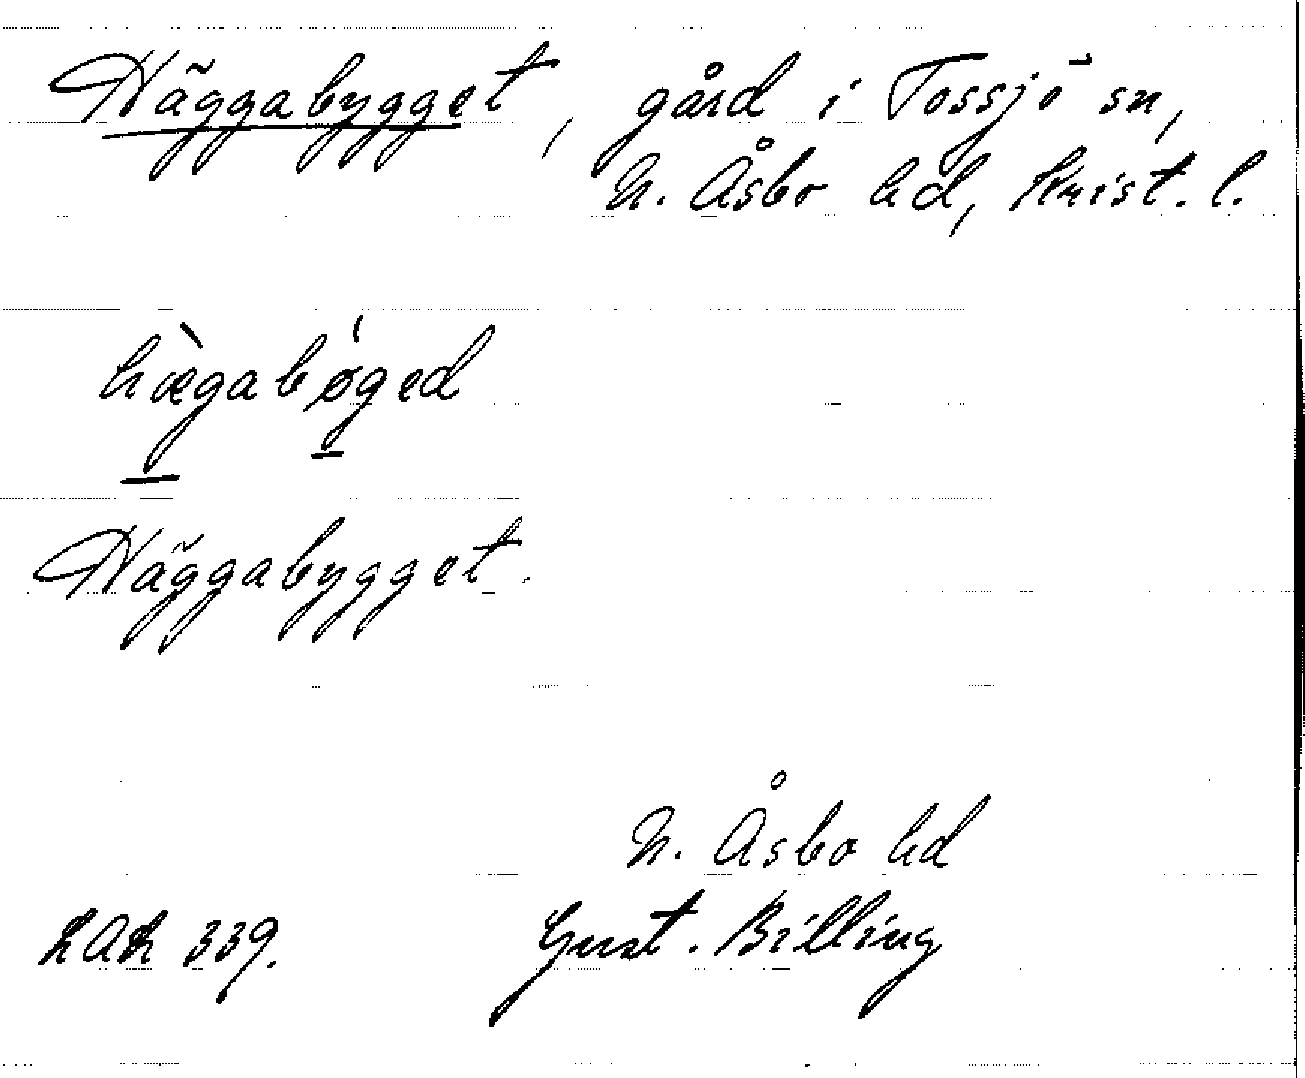 Häggabygget, gård i Tossjö sn,
N. Åsbo hd, Krist. l.
hæ̀gabǿged
Häggabygget.
N. Åsbo hd
LAL 339. Gust. Billing